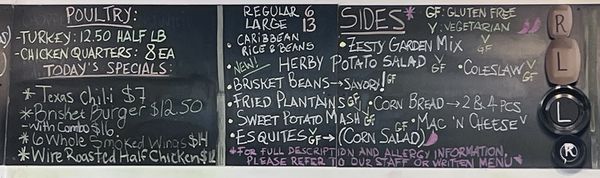 POULTRY:
-TURKEY: 12.50 HALF LB
-CHICKEN QUARTERS: 8 EA
TODAY'S SPECIALS:
*Texas Chili $7
*Brisket Burger $12.50
-with Combo $16
*6 Whole Smoked Wings $14
*Wire Roasted Half Chicken
REGULAR 6
LARGE 13
SIDES*
GF: GLUTEN FREE
V: VEGETARIAN
•CARIBBEAN RICE & BEANS
•ZESTY GARDEN MIX V GF
NEW! HERBY POTATO SALAD V GF
•COLESLAW V GF
BRISKET BEANS→SAVORY! GF
•FRIED PLANTAINS GF
•CORN BREAD→2 & 4 PCS
•SWEET POTATO MASH GF
•MAC 'N CHEESE V
•ESQUITES V GF→(CORN SALAD)
*FOR FULL DESCRIPTION AND ALLERGY INFORMATION,
PLEASE REFER TO OUR STAFF OR WRITTEN MENU*
R
L
L
R